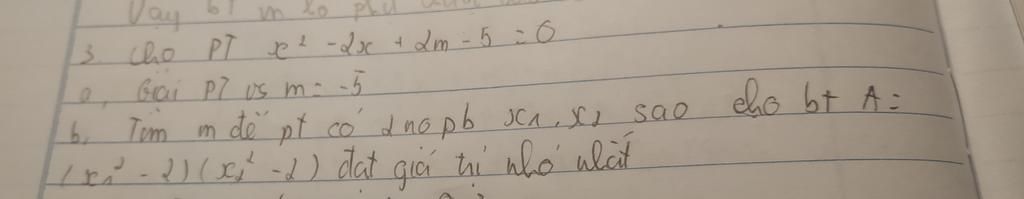 Vậy bt m
3. Cho PT x² - 2x + 2m - 5 = 0
a, Giải PT vs m = -5
b, Tìm m để pt có 2 no pb x₁, x₂ sao cho bt A =
(x₁² - 2)(x₂² - 2) đạt giá trị nhỏ nhất